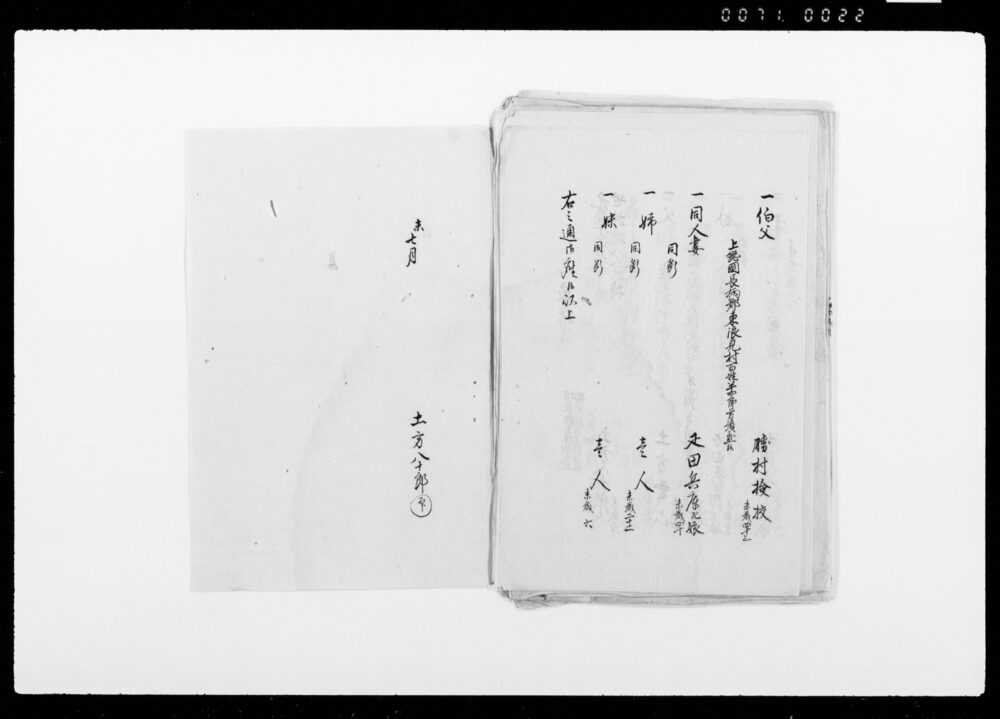 0071. 0022
一伯父　勝村検校
未歳四十三
上総国長柄郡東浪見村百姓
一同人妻　疋田兵庫元娘
同断　未歳四十
一姉　壱人
同断　未歳二十二
一妹　壱人
同断　未歳六
右之通御座候以上
未七月
土方八十郎